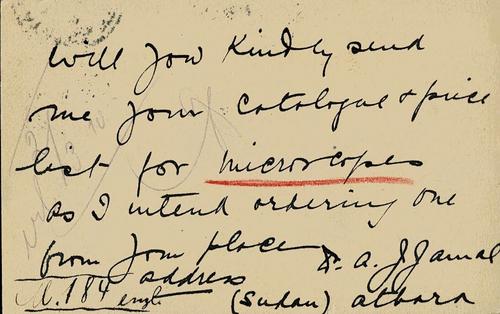 Will you kindly send
me your catalogue & price
list for microscopes
as I intend ordering one
from your place
Dr. A. J. Jamal
address
M. 184 engl
(Sudan) Atbara